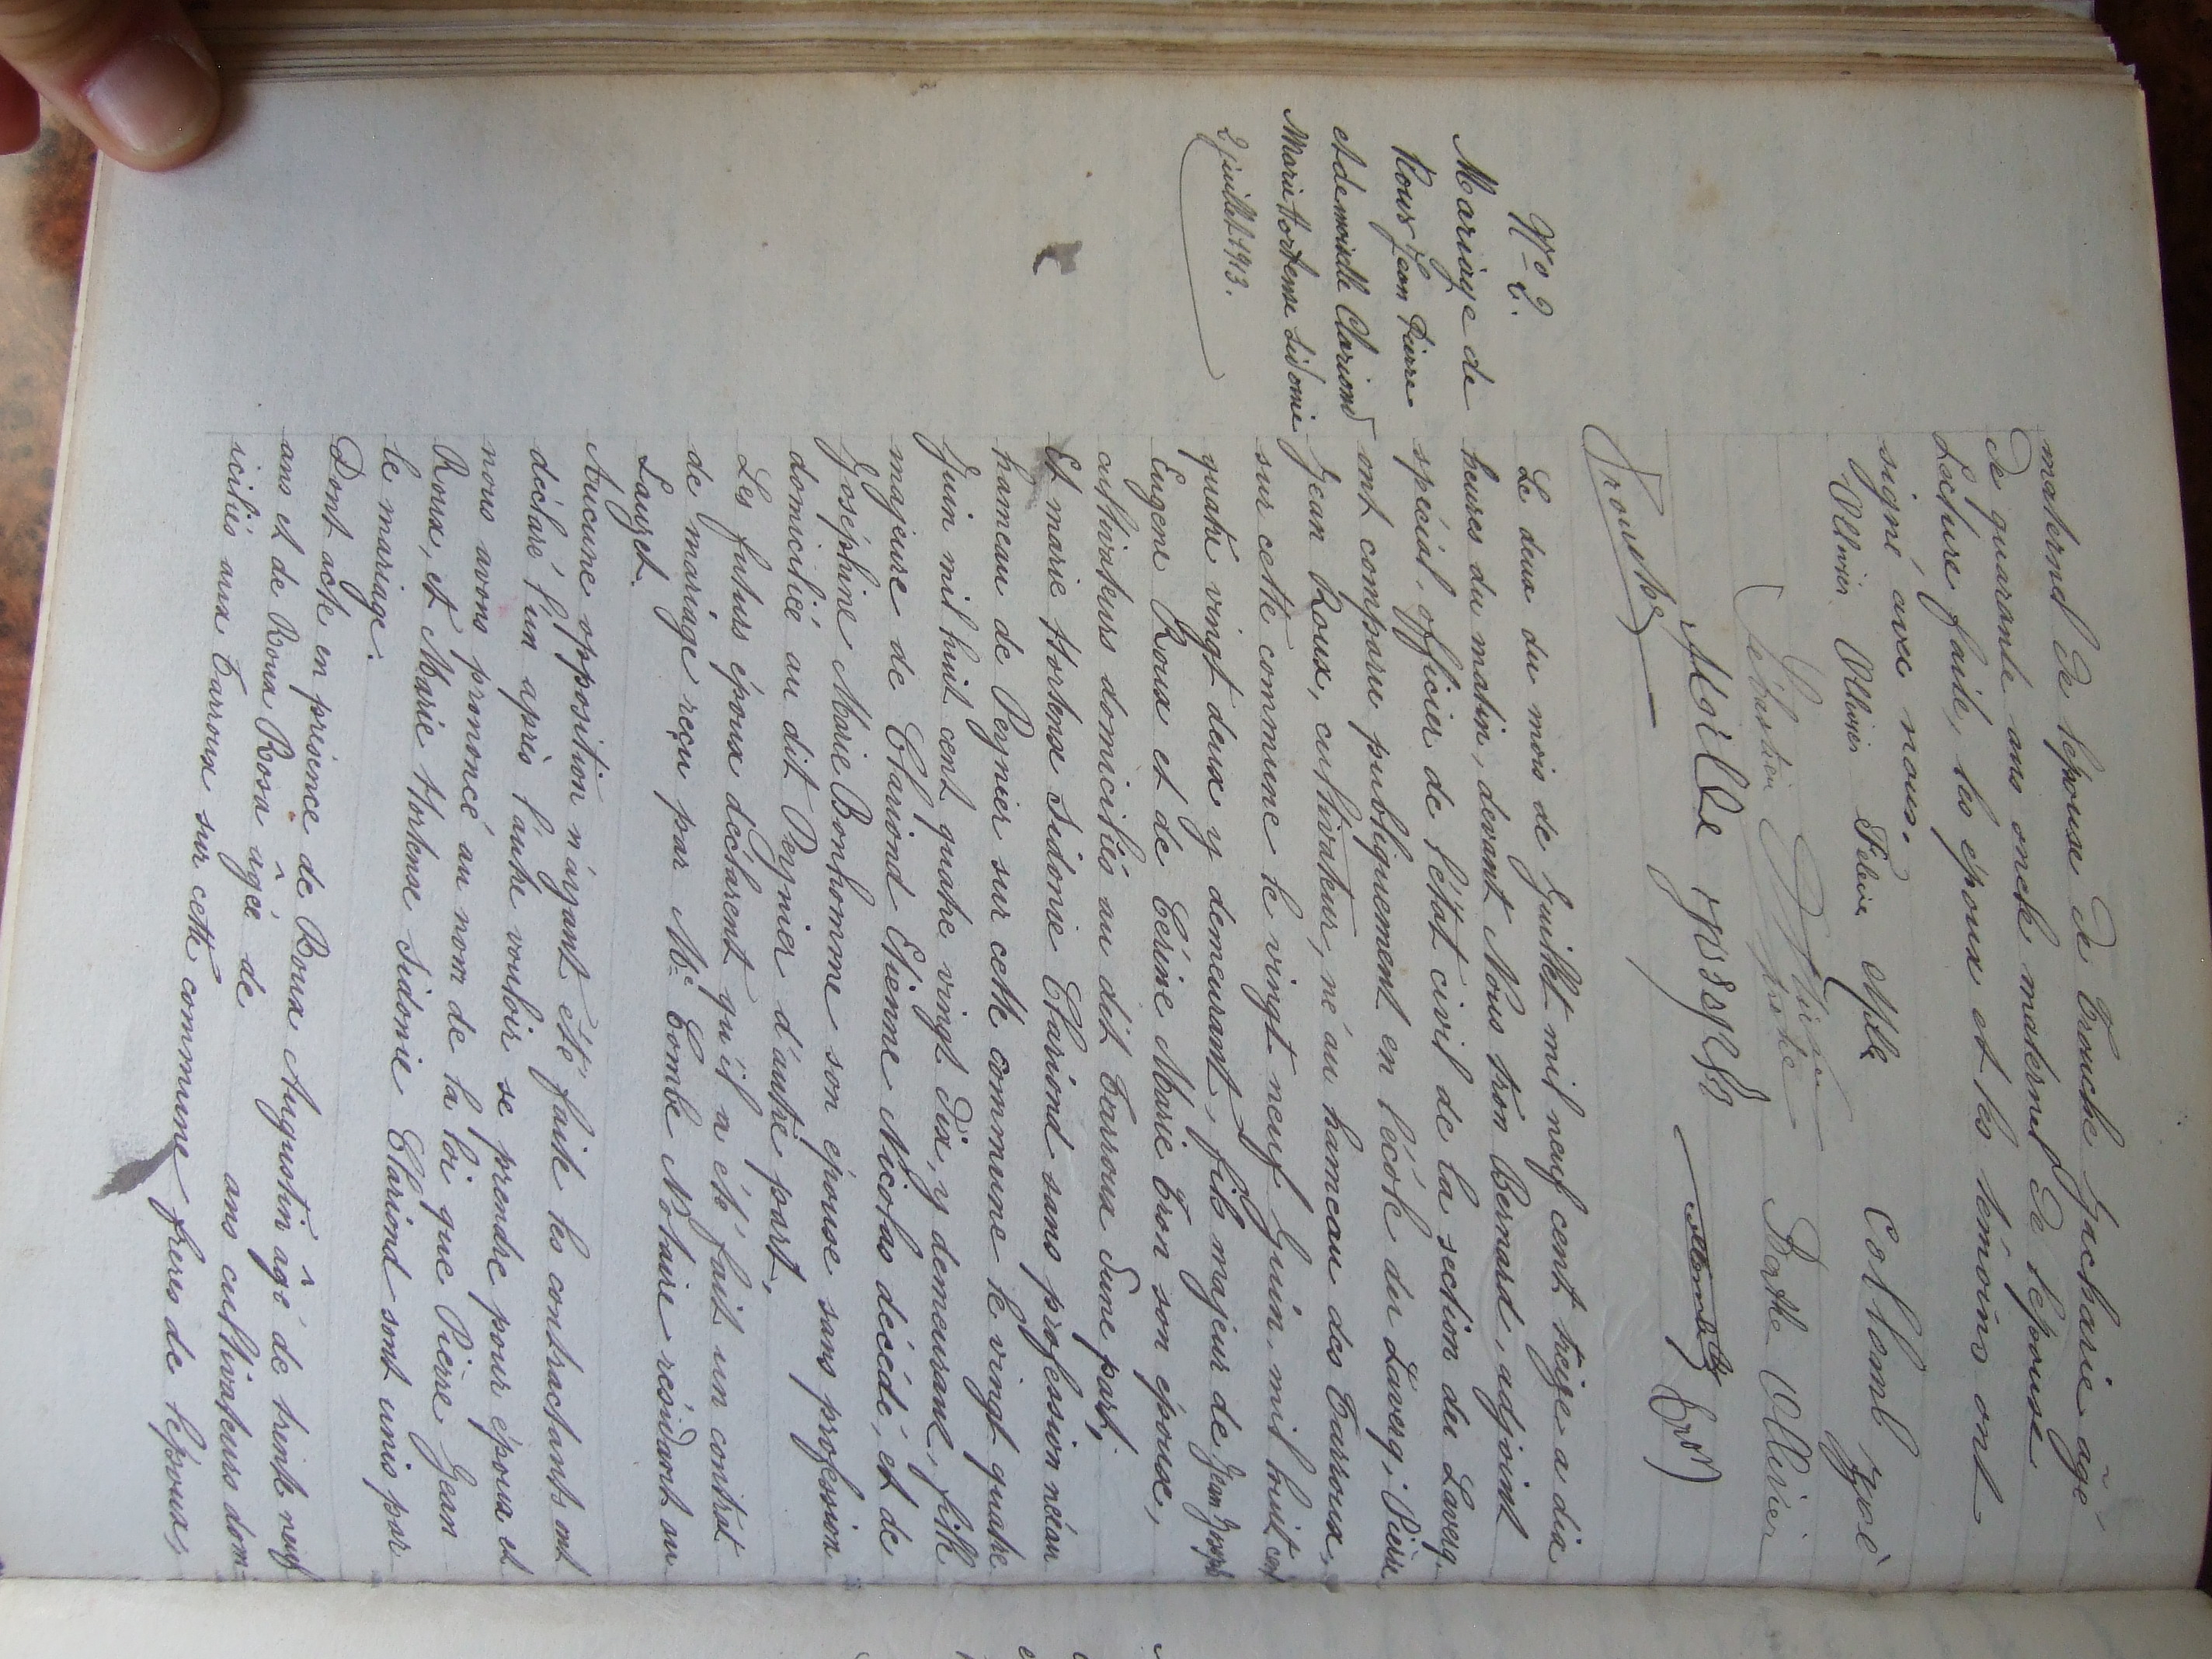 maternel de l'épouse de Trouche Zacharie âgé
de quarante ans oncle maternel de l'épouse
Lecture faite, les époux et les témoins ont
signé avec nous.
Ollivier Ollivier Colomb
Sébastien Barthe Ollivier
Trouche
N° 2.
Mariage de
Roux Jean Pierre
et demoiselle Clariond
Marie Hortense Sidonie
2 juillet 1913.
Le deux du mois de Juillet mil neuf cent treize a dix
heures du matin, devant Nous Tron Bernard, adjoint
spécial, officier de l'état civil de la section du Laverq.
ont comparu publiquement en l'école du Laverq, Pierre
Jean Roux, cultivateur, né au hameau des Tarroux,
sur cette commune le vingt neuf Juin, mil huit cent
quatre vingt deux y demeurant, fils majeur de Jean Joseph
Eugene Roux et de Cérine Marie Tron son épouse,
cultivateurs domiciliés au dit Tarroux d'une part,
Et marie Hortense Sidonie Clariond sans profession née au
hameau de Peynier sur cette commune le vingt quatre
Juin mil huit cent quatre vingt dix, y demeurant, fille
majeure de Clariond Etienne Nicolas décédé, et de
Joséphine Marie Bonhomme son épouse sans profession
domiciliée au dit Peynier d'autre part.
Les futurs époux déclarent qu'il a été fait un contrat
de mariage reçu par Me Combe Notaire résidant au
Lauzet.
Aucune opposition n'ayant été faite les contractants ont
déclaré l'un après l'autre vouloir se prendre pour époux et
nous avons prononcé au nom de la loi que Pierre Jean
Roux, et Marie Hortense Sidonie Clariond sont unis par
le mariage.
Dont acte en présence de Roux Augustin âgé de trente neuf
ans et de Roux Rosa âgée de ans cultivateurs dom-
iciliés aux Tarroux sur cette commune frères de l'époux,